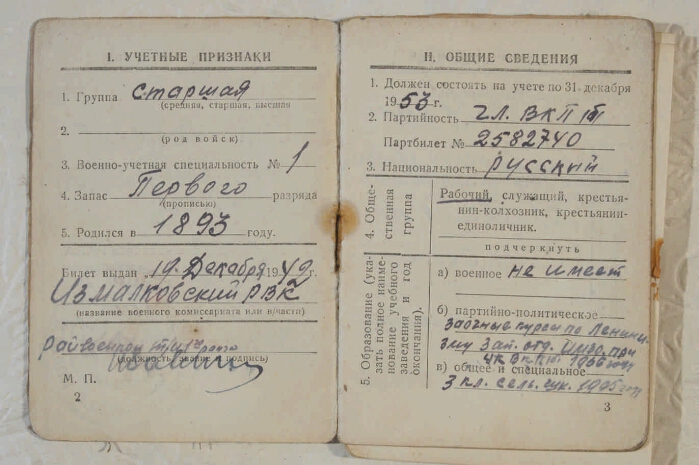 I. УЧЕТНЫЕ ПРИЗНАКИ
1. Группа старшая
(средняя, старшая, высшая
2.
(род войск)
3. Военно-учетная специальность № 1
4. Запас Первого разряда
(прописью)
5. Родился в 1893 году.
Билет выдан 19 Декабря 1949 г.
Измалковский РВК
(название военного комиссариата или в/части)
райвоенком
(должность, звание и подпись)
М. П.
2
II. ОБЩИЕ СВЕДЕНИЯ
1. Должен состоять на учете по 31. декабря
1953 г.
2. Партийность чл. ВКП/б
Партбилет № 2582740
3. Национальность русский
4. Общественная группа
Рабочий, служащий, крестья-
нин-колхозник, крестьянин-
единоличник.
подчеркнуть
5. Образование (ука-
зать полное наиме-
нование учебного
заведения и год
окончания).
а) военное не имеет
б) партийно-политическое
заочные курсы по Ленини-
зму зап. отд. при
ЦК ВКПб 1936 году
в) общее и специальное
3 кл. сель. 1905 году
3